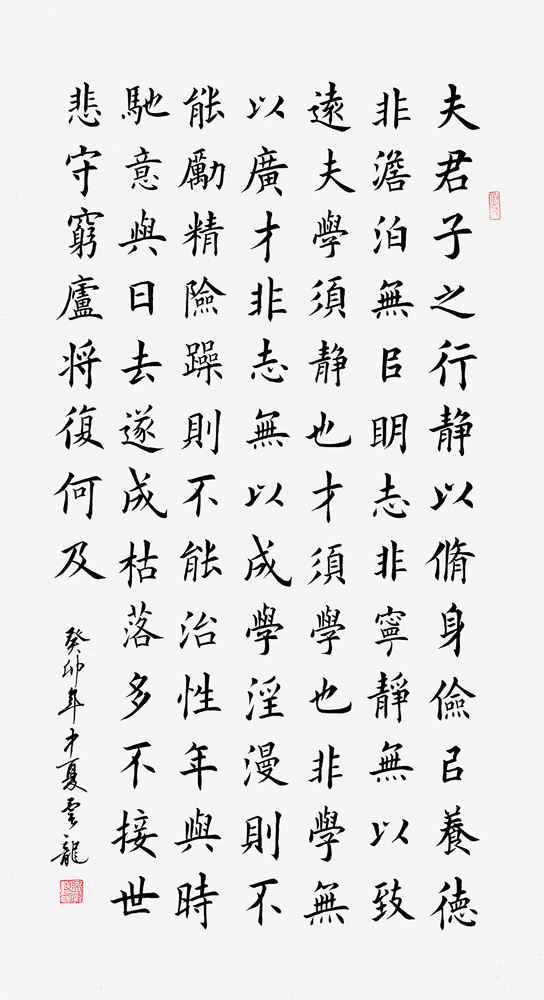 夫君子之行静以脩身儉㠯養德
非澹泊無㠯眀志非寧静無以致
遠夫學須静也才須學也非學無
以廣才非志無以成學淫漫則不
能勵精險躁則不能治性年與時
馳意與日去遂成枯落多不接世
悲守窮廬将復何及
癸卯年中夏雲龍